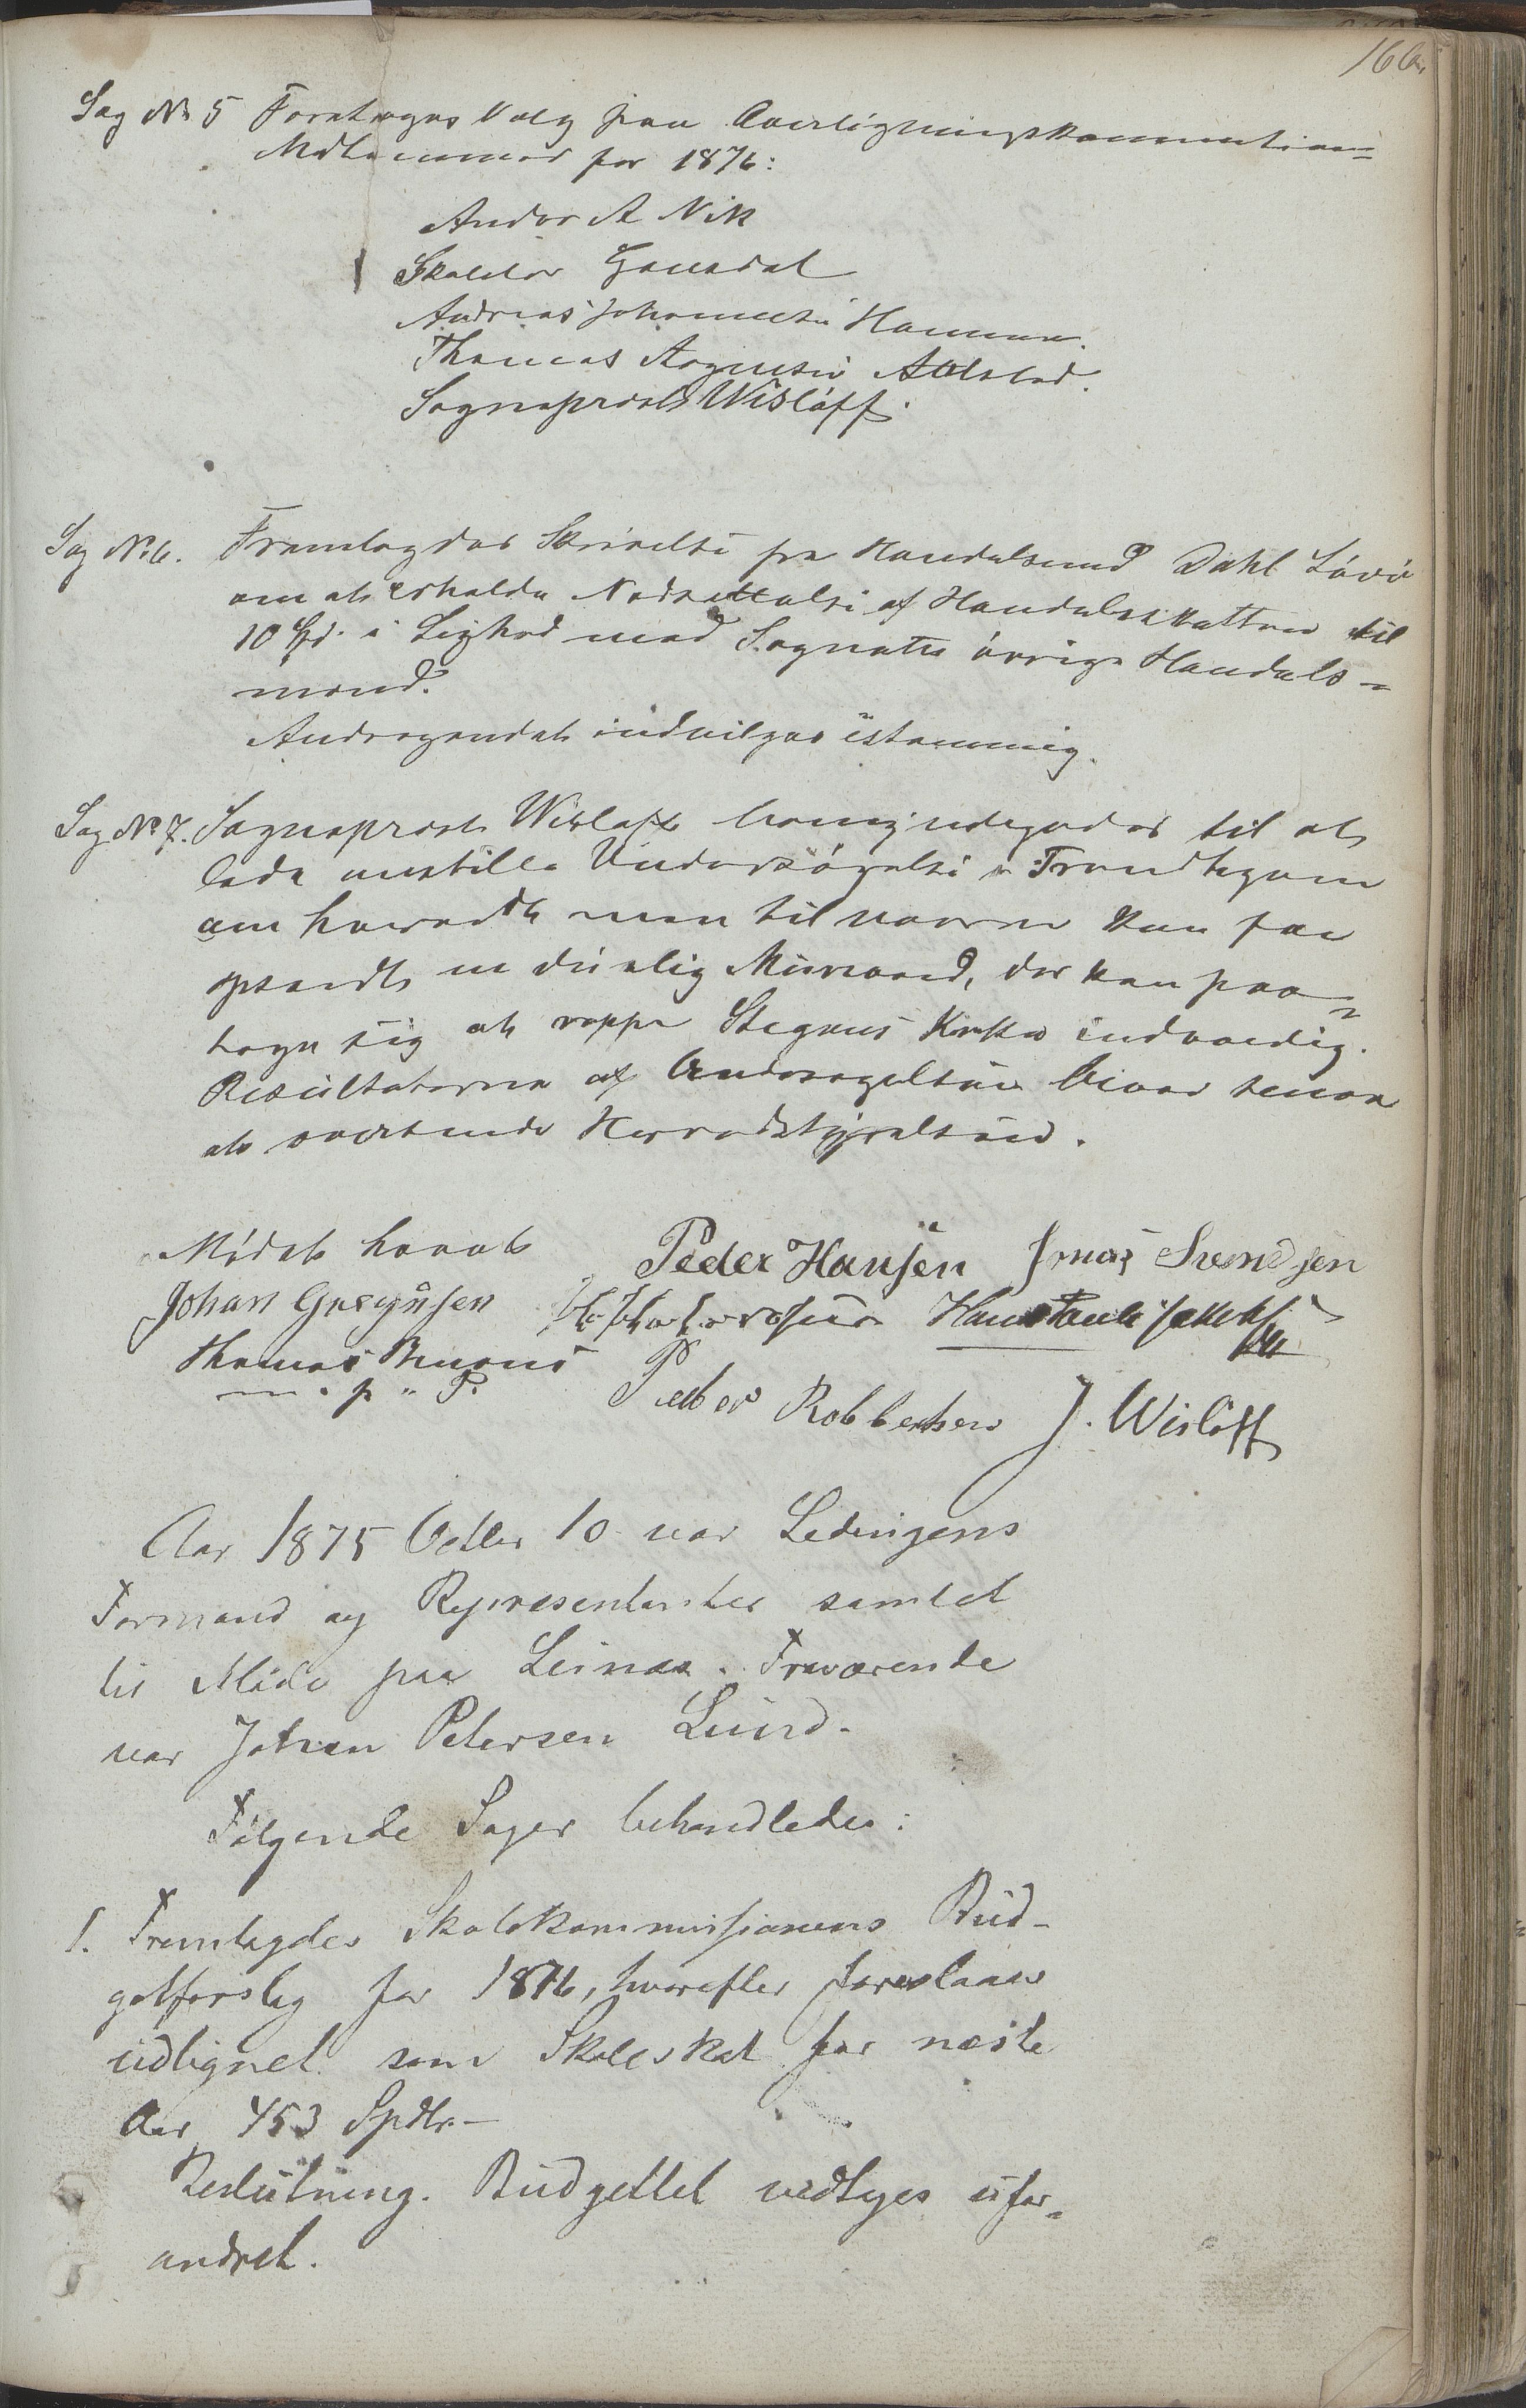 166
Sag No 5 Foretoges Valg paa Overligningskommissions=
Medlemmer for 1876:
Anders A Nik
Skoleler
Andreas Johannesen Hamnen.
Thomas Aagesen
Sogneprest Wisløff.
Sag No 6. Fremlagdes Skrivelse fra Handelsmand Dahl Løvø
om at erholde Nedsettelse af Handelsskatten til
10 Spd. i Lighed med Sognets øvrige Handels=
mænd.
Andragendet indvilges istemmig.
Sag No 7. Sogneprest Wisløff bemyndigedes til at
lade anstille Undersøgelse i Trondhjem
om hvorvidt man til vaaren kan faa
opsendt en duelig Murmand, der kan paa=
tage sig at rappe Stegens Kirke indvendig.
Resultaterne af Undersøgelsen bliver senere
at oversende Herredstyrelsen.
Mødet hævet
Peder Hansen Jonas Svendsen
Johan Greguسen Hans Paul Jakobs
Thomas Benoni
m. p. P.
Peder Robbertsen J. Wisløff
Aar 1875 Octbr 10 var Ledingens
Formand og Representanter samlet
til Møde paa Leines. Fraværende
var Johan Petersen Lund.
Følgende Sager behandledes:
1. Fremlagdes Skolekommissionens Bud-
getforslag for 1876, hvorefter foreslaaes
udlignet som Skoleskat for næste
Aar 453 Spdlr.—
Beslutning. Budgettet vedtages ufor=
andret.